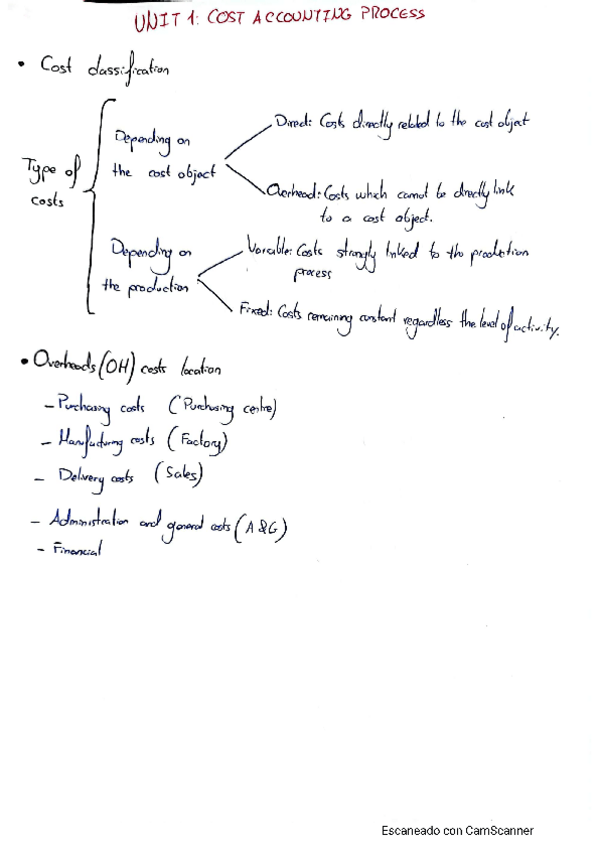 UNIT 1: COST ACCOUNTING PROCESS
• Cost classification
Type of costs
Depending on
the cost object
Direct: Costs directly related to the cost object
Overhead: Costs which cannot be directly link
to a cost object.
Depending on
the production
Variable: Costs strongly linked to the production
process
Fixed: Costs remaining constant regardless the level of activity.
• Overheads (OH) costs location
- Purchasing costs (Purchasing centre)
- Manufacturing costs (Factory)
- Delivery costs (Sales)
- Administration and general costs (A&G)
- Financial
Escaneado con CamScanner